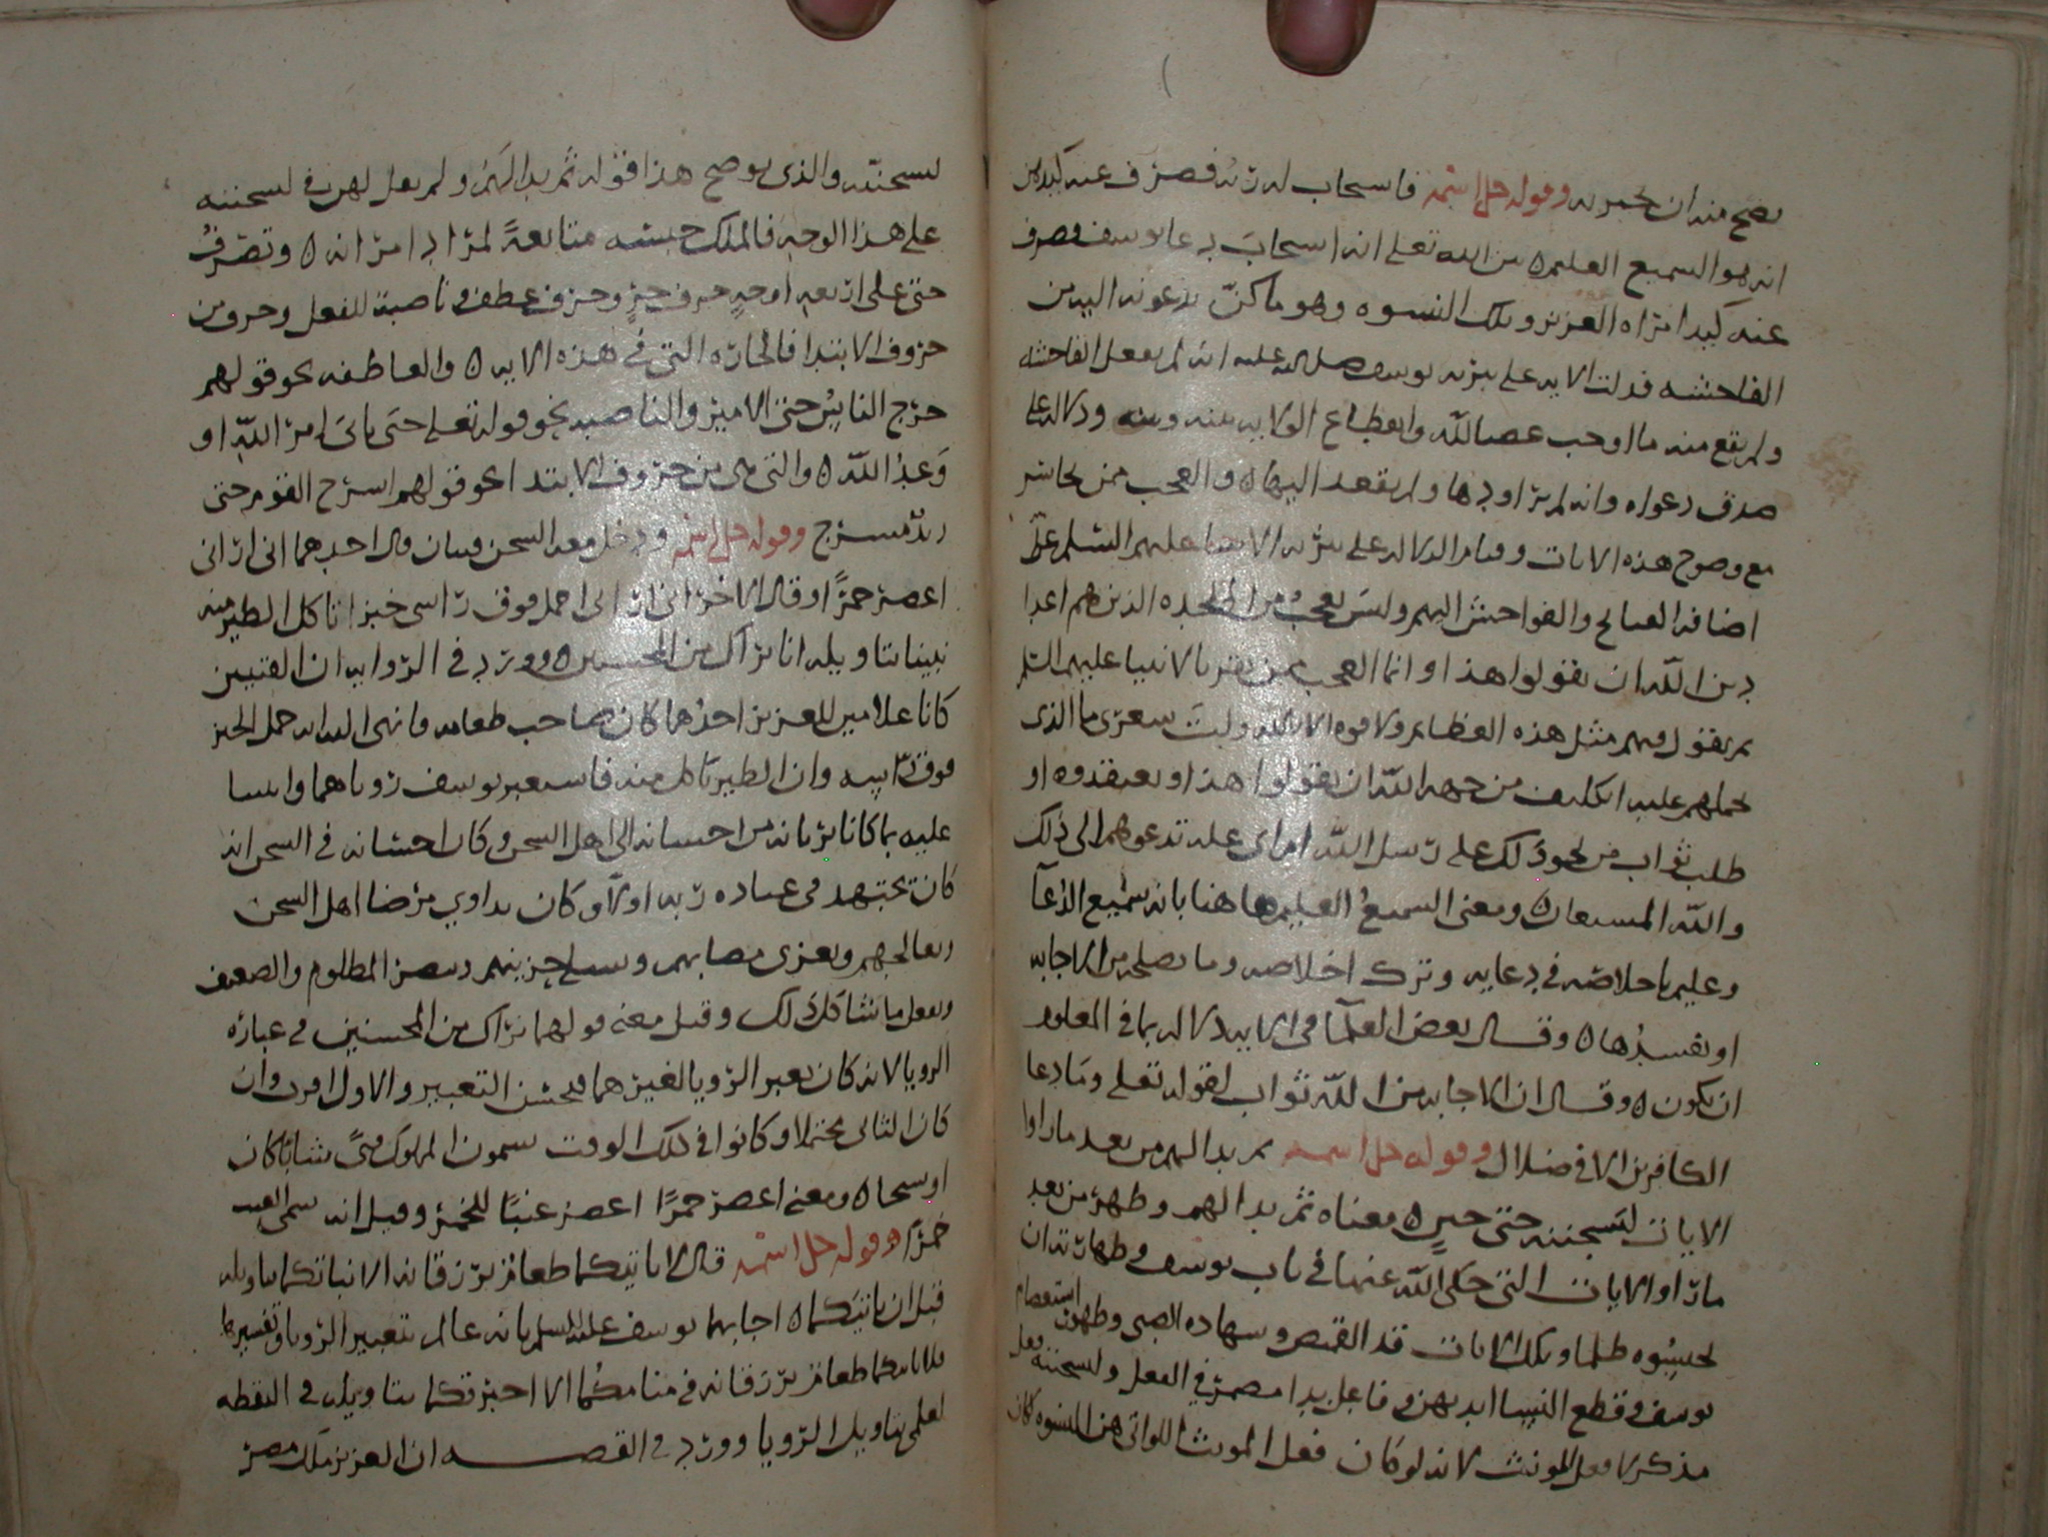 يصح منه ان يخبر به وقوله جل اسمه فاستجاب له ربه فصرف عنه كيدهن
انه هو السميع العليم ه بين الله تعلى انه استجاب دعا يوسف فصرف
عنه كيد امراه العزيز وتلك النسوه وهو ما كنّ يدعونه اليه من
الفاحشه فدلت الايه على تنزيه يوسف صلى الله عليه انه لم يفعل الفاحشه
ولم يقع منه ما اوجب غضب الله وانقطاع الولايه بينه وبينه ودلاله على
صدق دعواه وانه لم يراودها ولم يقصد اليها ه والعجب ممن
مع وضوح هذه الايات وقيام الدلاله على تنزيه الانبيا عليهم السلم على
اضافه القبائح والفواحش اليهم وليس يعجب من الملحده الذين هم اعدا
دين الله ان يقولوا هذا وانما العجب ممن يقر بالانبيا عليهم السلم
ثم يقول فيهم مثل هذه العظائم ولا قوه الا بالله وليت شعرى ما الذى
يحملهم عليه اتكليف من جهه الله ان يقولوا هذا ويعتقدوه او
طلب ثواب من نحو ذلك على رسل الله ام اى عله تدعوهم الى ذلك
والله المستعان ه ومعنى السميعُ العليم هاهنا بانه سميع الدعآ
وعليم باخلاصه فى دعايه وترك اخلاصه وما يصلحه من الاجابه
او يفسدها ه وقال بعض العلمآ فى الايه دلاله بما فى المعلوم
ان يكون ه وقال ان الاجابه من الله ثواب لقوله تعلى وما دعا
الكافرين الا فى ضلال وقوله جل اسمه ثم بدا لهم من بعد ما راوا
الايات ليسجننه حتى حين ه معناه ثم بدا لهم وظهر من بعد
ما راوا الايات التى حكى الله عنها فى باب يوسف وطهارته ان
يحبسوه ظلما وتلك الايات قد القميص وشهاده الصبى وظهور استعصام
يوسف وقطع النسا ايديهن وفاعل بدا مضمر فى الفعل وليسجننه فعل
مذكر لا فعل المونث لانه لو كان فعل المونث اللواتى هن النسوه كان
ليسجننه والذى يوضح هذا قوله ثم بدا لهم ولم يقل لهن فى ليسجننه
على هذا الوجه فالملك حبسه متابعهً لمراد امرانه ه وتصرف
حتى على اربعه اوجه حرف جرٍ وحرف عطف وناصبة للفعل وحرف من
حروف الابتدا فالجاره التى فى هذه الايه ه والعاطفه نحو قولهم
خرج الناسُ حتى الامير والناصبه نحو قوله تعلى حتى ياتىَ امر الله او
وَعدُ الله ه والتى هى من حروف الابتدا نحو قولهم اسرج القوم حتى
زيدٌ مسرج وقوله جل اسمه ودخل معه السجن فتيان قال احدهما انى ارانى
اعصر خمرًا وقال الاخر انى ارانى احمل فوق راسى خبزا تاكل الطير منه
نبينا بتاويله انا نراك من المحسنين ه وورد فى الروايه ان الفتيين
كانا غلامين للعزيز احدُهما كان صاحب طعامه فانهى اليه انه حمل الخبز
فوق راسه وان الطير تاكل منه فاستعبر يوسف رؤياهما واثنيا
عليه بما كانا يريانه من احسانه الى اهل السجن وكان احسانه فى السجن انه
كان يجتهد فى عباده ربه اولًا وكان يداوي مرضا اهل السجن
ويعالجهم ويعزى مصابهم ويسلى حزينهم وينصر المظلوم والضعيف
ويفعل ما يشاكل ذلك وقيل معنى قولهما نراك من المحسنين فى عباره
الرويا لانه كان يعبر الرويا لغيرهما فيحسن التعبير والاول اقرب وان
كان الثانى محتملا وكانوا فى ذلك الوقت يسمون المملوك فتىً شابًا كان
او شيخا ه ومعنى اعصر خمرًا اعصر عنبًا للخمر وقيل انه سمى العنب
خمرًا ه وقوله جل اسمه قال لا ياتيكما طعام ترزقانه الا نباتكما بتاويله
قبل ان ياتيكما ه اجابهما يوسف عليه السلم بانه عالم بتعبير الرويا وتفسيرها
فلا ياتيكما طعام ترزقانه فى منامكُما الا اخبرتكما بتاويله فى اليقظه
لعلمى بتاويل الرويا وورد فى القصه ان العزيز ملك مصر